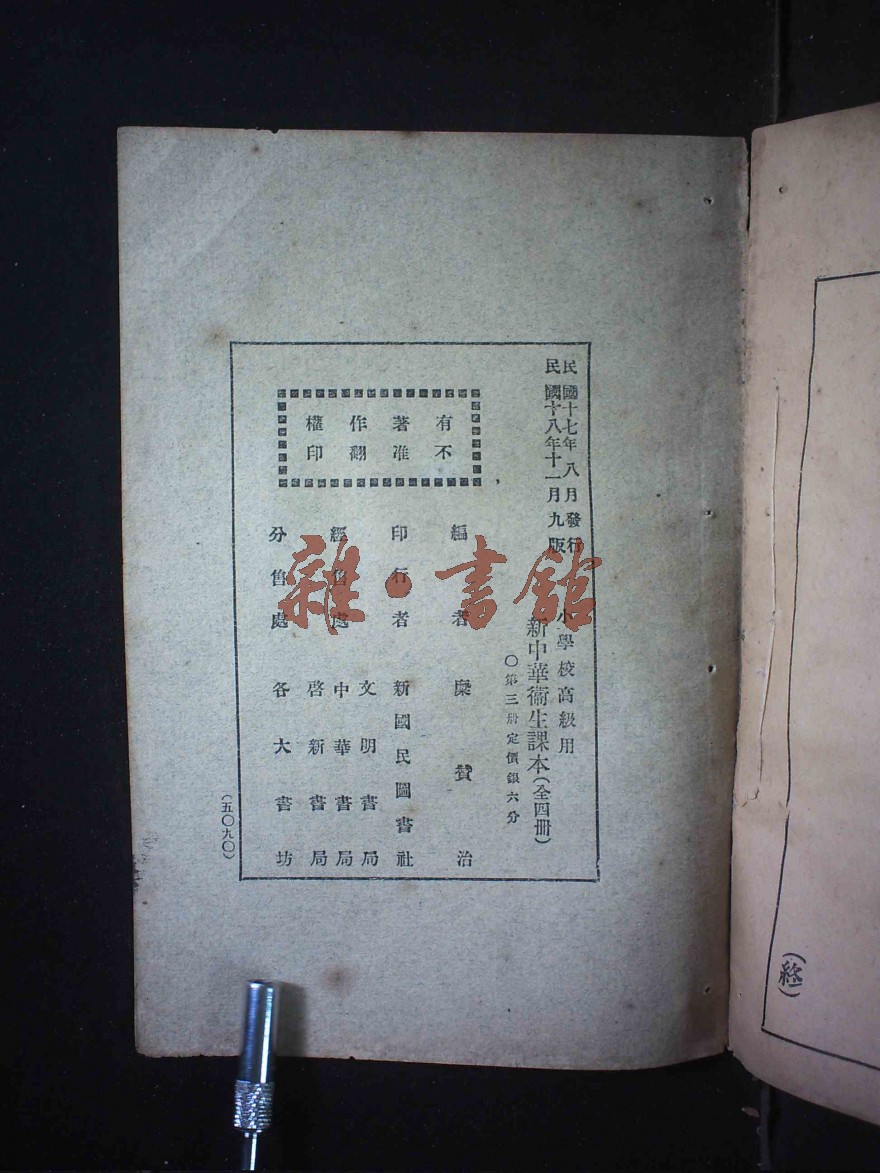 民國十七年八月發行
民國十八年十一月九版
小學校高級用
新中華衛生課本(全四冊)
〇第三册定價銀六分
有著作權
不准翻印
編者 糜贊治
印行者 新國民圖書社
經售處 文明書局
中華書局
啓新書局
分售處 各大書坊
(五〇九〇)
雜·書館
(終)